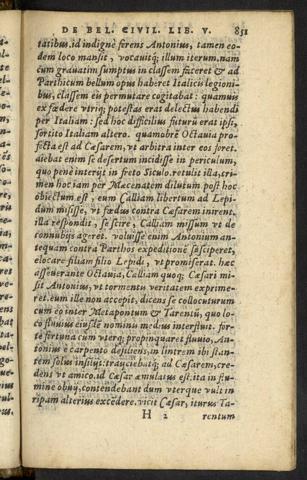 DE BEL. CIVIL. LIB. V. 851
tatibus. id indignè ferens Antonius, tamen eo-
dem loco mansit, vocauitq; illum iterum. nam
cum grauatim sumptus in classem faceret & ad
Parthicum bellum opus haberet Italicis legioni-
bus, classem eū permutare cogitabat: quamuis
ex fœdere vtriq; potestas erat delectus habendi
per Italiam: sed hoc difficilius futurū erat ipsi,
sortito Italiam altero. quamobrē Octauia pro-
fecta est ad Cæsarem, vt arbitra inter eos foret.
aiebat enim se desertum incidisse in periculum,
quo penè interijt in freto Siculo. retulit illa, cri-
men hoc iam per Mæcenatem dilutum post hoc
obiectum est, eum Calliam libertum ad Lepi-
dum misisse, vt fœdus contra Cæsarem inirent.
illa respondit, se scire, Calliam missum vt de
connubijs ageret. voluisse enim Antonium an-
tequam contra Parthos expeditionē susciperet,
elocare filiam filio Lepidi, vt promiserat. hæc
asseuerante Octauia, Calliam quoq; Cæsari mi-
sit Antonius, vt tormentis veritatem exprime-
ret. eum ille non accepit, dicens se collocuturum
cum eo inter Metapontum & Tarentū, quo lo-
co fluuius eiusdē nominis medius interfluit. for-
te fortuna cum vterq; propinquaret fluuio, An-
tonius è carpento desiliens, in lintrem ibi stan-
tem solus insiluit: traijciebatq; ad Cæsarem, cre-
dens vt amico. id Cæsar æmulatus est: ita in flu-
mine obuij, contendebant dum vterque vult in
ripam alterius excedere. vicit Cæsar, iturus Ta-
H 2 rentum